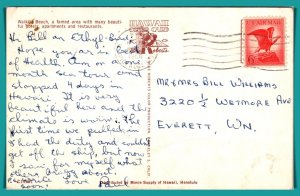 Waikiki Beach, a famed area with many beauti-
ful hotels, apartments and restaurants.
HAWAII
POST CARD
Hi Bill an Ethyl Bird,
Hope you are in best
of Health. Am on a one
month sea tour and
stopped 4 days in
Hawaii. It is very
beautiful here and the
climate is warm. The
first time we pulled in
I had the duty and couldn't
get off the ship, but now
for myself what
about.
Love
soon.
U.S. AIR MAIL
6¢
MR & MRS Bill Williams
3220 ½ Wetmore Ave
Everett, WN.
Distributed by Movie Supply of Hawaii, Honolulu